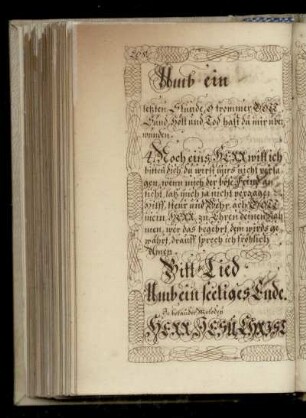 Umb ein
letzten Stunde, O frommer GOTT
Sünd Höll und Tod hast du mir über
wunden.
4. Noch eins HERR will ich
bitten dich, du wirst mirs nicht versa
gen, wenn mich der böse Feind an
ficht, laß mich ja nicht verzagen,
Hilff, steur und wehr, ach GOTT
mein HERR, zu Ehren deinem Nah
men, wer das begehrt, dem wirds ge
währt, drauff sprech ich fröhlich
Amen.
Bitt-Lied
Umb ein seeliges Ende.
In bekandter Melodey
HERR JESU CHRIST